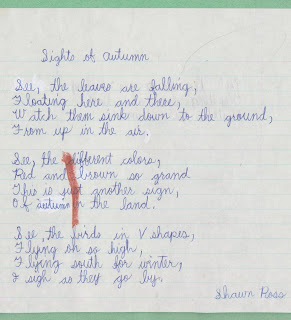 Sights of autumn
See, the leaves are falling,
Floating here and there,
Watch them sink down to the ground,
From up in the air.
See, the different colors,
Red and brown so grand
This is just another sign,
Of autumn in the land.
See, the birds in V shapes,
Flying oh so high,
Flying south for winter,
I sigh as they go by.
Shawn Ross